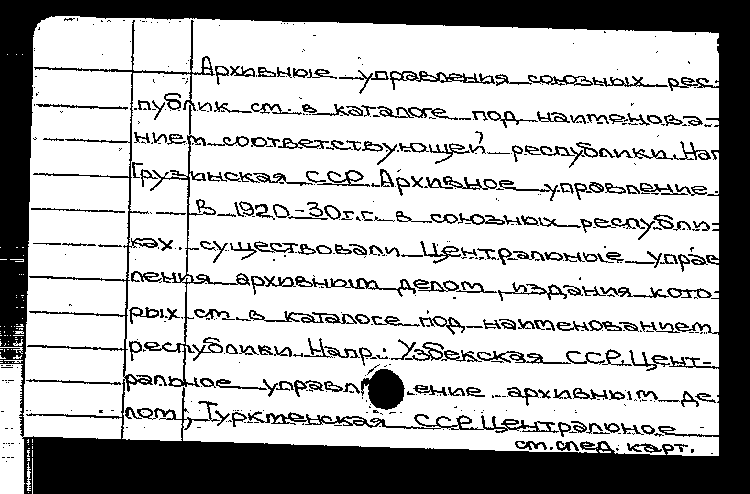 Архивные управления союзных рес-
публик см. в каталоге под наименова-
нием соответствующей республики. Нап
Грузинская ССР. Архивное управление.
В 1920-30г.г. в союзных республи-
ках существовали Центральные управ
ления архивным делом, издания кото-
рых см. в каталоге под наименованием
республики. Напр.: Узбекская ССР. Цент-
ральное управление архивным де-
лом; Туркменская ССР. Центральное
см. след. карт.